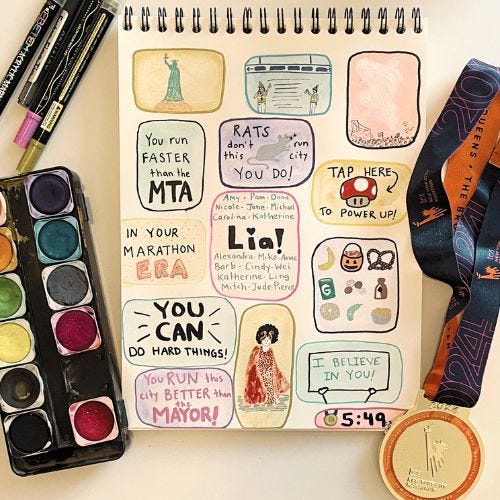 You run
FASTER
than the
MTA
RATS
don't run
this city
YOU DO!
TAP HERE
TO POWER UP!
IN YOUR
MARATHON
ERA
Amy · Pam · Dana
Nicole · Jane · Michael
Carolina · Katherine
Lia!
Alexandra · Mike · Anne
Barb · Cindy · Wei
Katherine · Ling
Mitch · Jude · Pierce
YOU
CAN
DO HARD THINGS!
I BELIEVE
IN YOU!
You RUN this
city BETTER than
the
MAYOR!
5:49
QUEENS · THE
2024